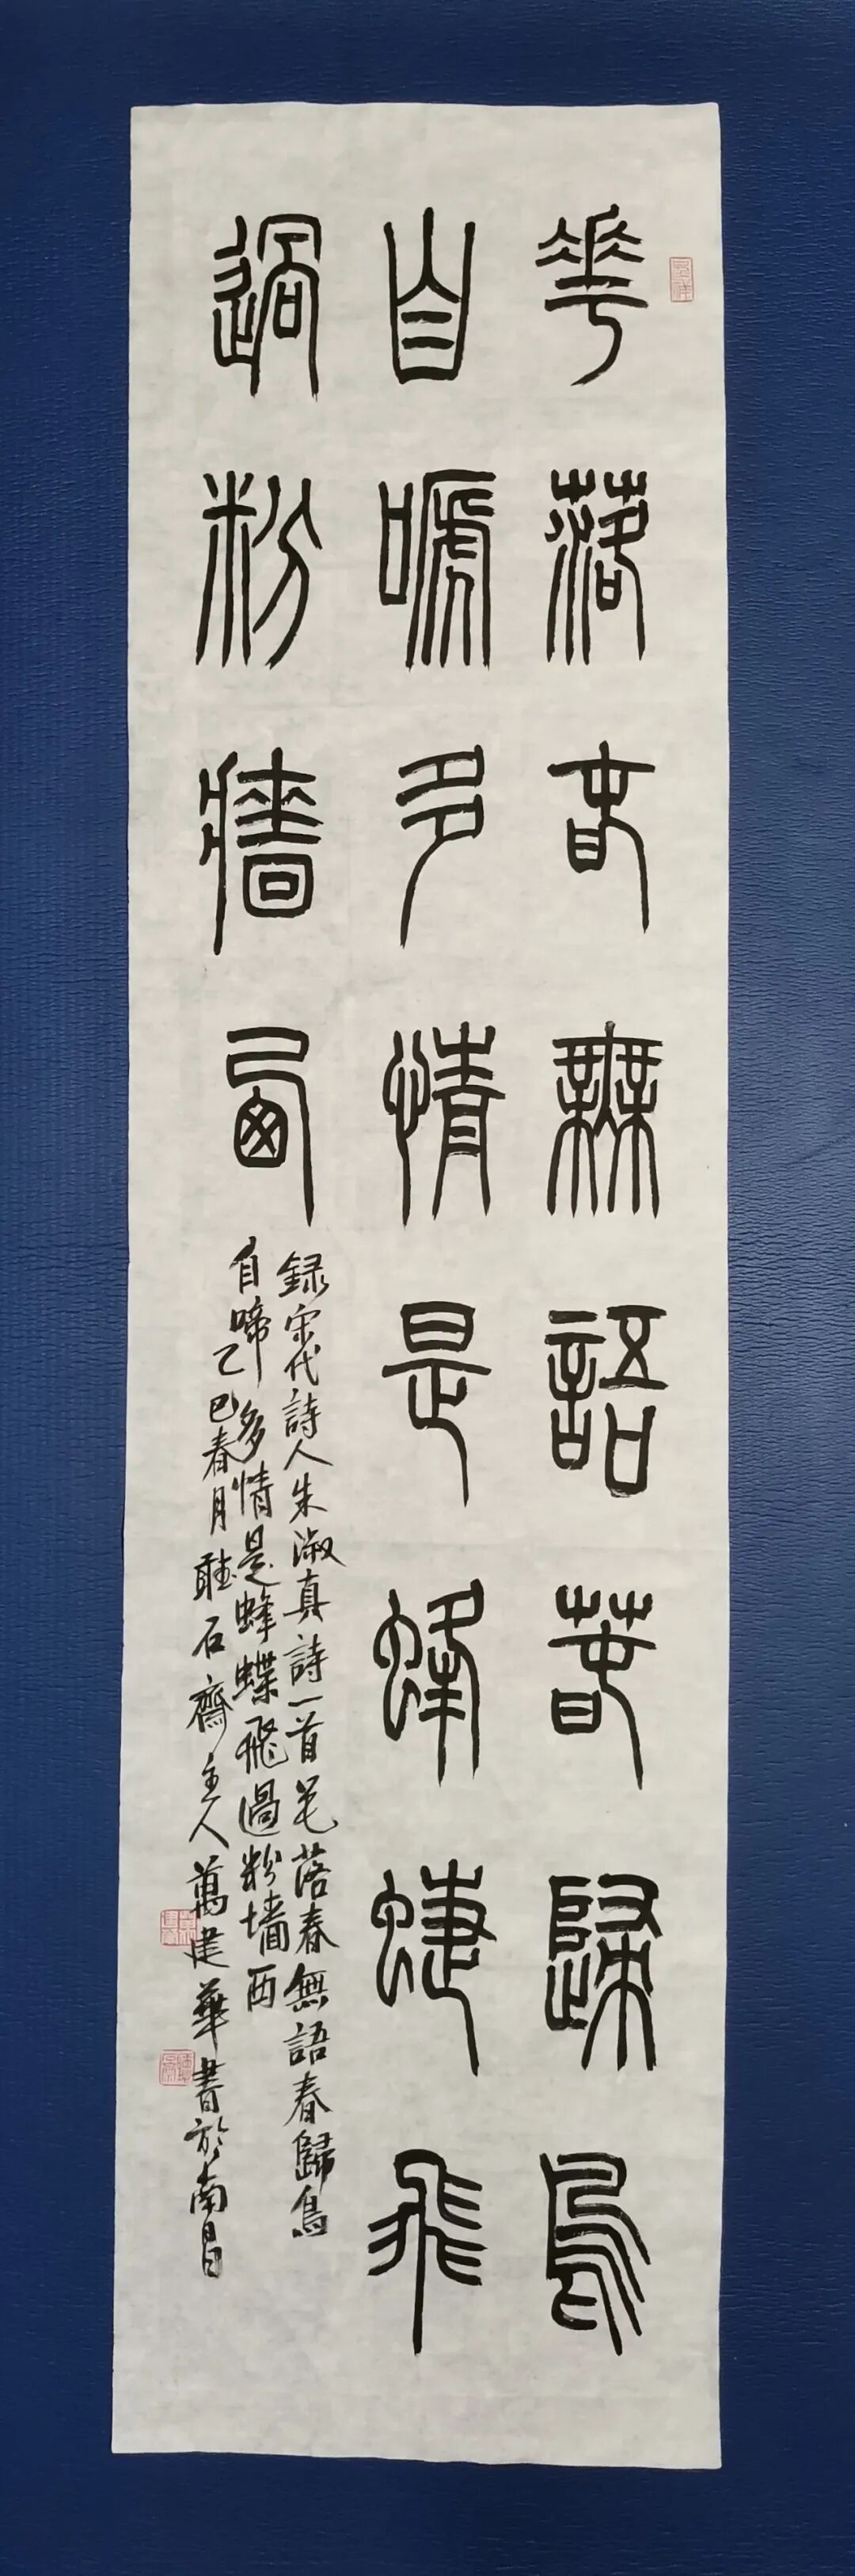 華落春無語春歸鳥
自嗁多情是蜂蜨飛
過粉牆西
録宋代詩人朱淑真詩一首花落春無語春歸鳥
自啼多情是蜂蝶飛過粉墻西
乙巳春月石齋主人萬建華書於南昌